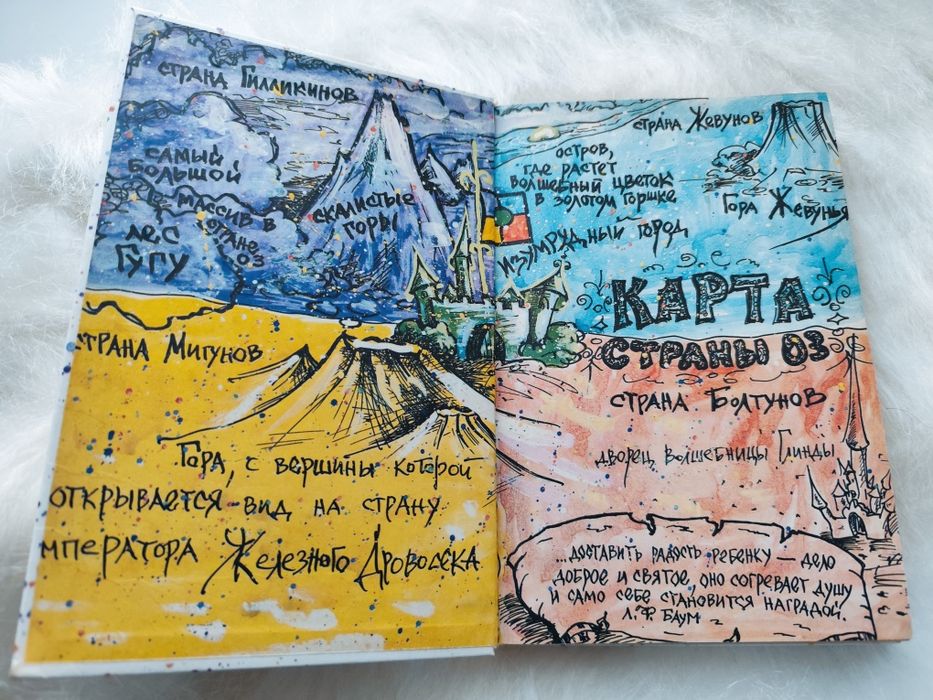 страна Гилликинов
самый
большой
массив в
стране
ОЗ
лес
Гугу
скалистые
горы
страна Мигунов
Гора, с вершины которой
открывается вид на страну
мператора Железного Дровосека
страна Жевунов
остров,
где растет
волшебный цветок
в золотом горшке
Гора Жевунья
Изумрудный город
КАРТА
СТРАНЫ ОЗ
страна Болтунов
дворец волшебницы Глинды
...доставить радость ребенку — дело
доброе и святое, оно согревает душу
и само себе становится наградой.
Л. Ф. Баум